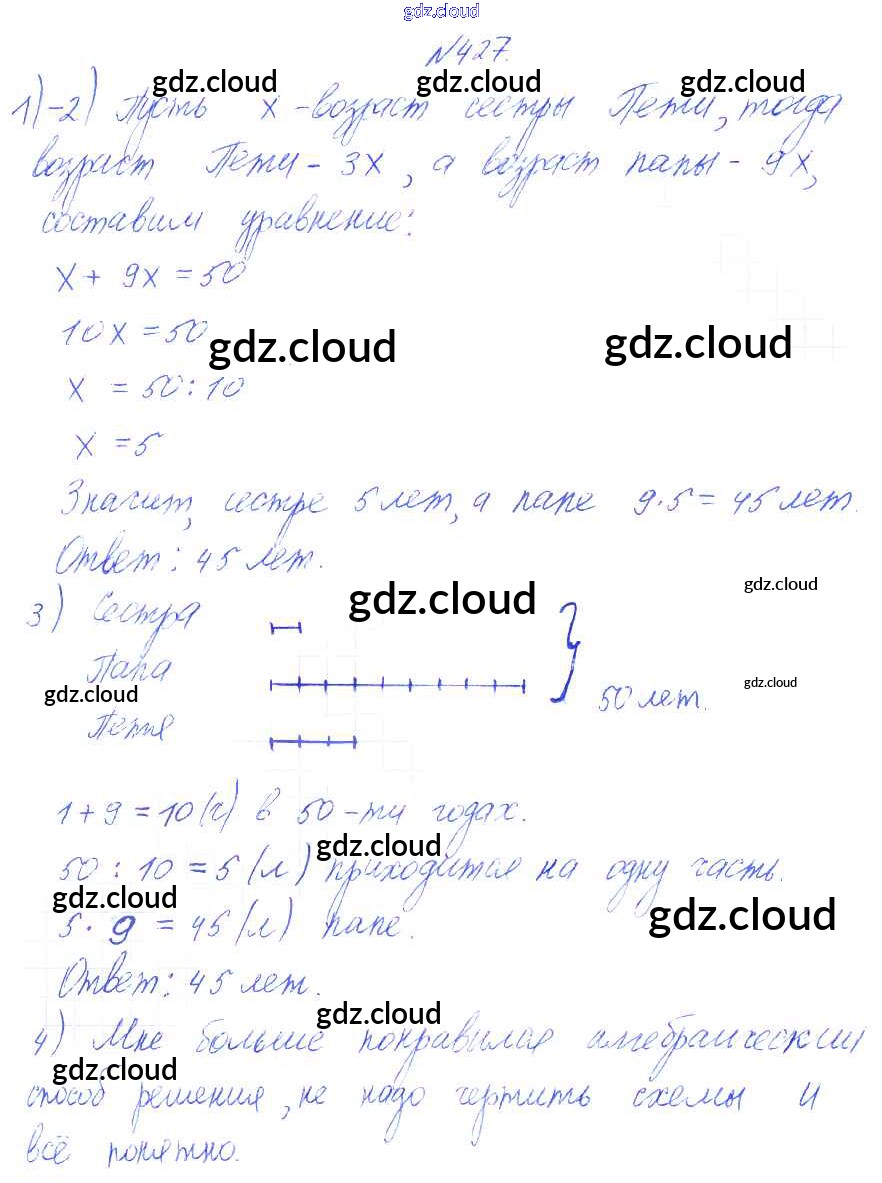 gdz.cloud
№427.
gdz.cloud gdz.cloud gdz.cloud
1)-2) Пусть x - возраст сестры Пети, тогда
возраст Пети - 3x, а возраст папы - 9x,
составим уравнение:
x + 9x = 50
10x = 50
gdz.cloud gdz.cloud
x = 50 : 10
x = 5
Значит, сестре 5 лет, а папе 9·5 = 45 лет.
Ответ: 45 лет.
gdz.cloud gdz.cloud
3) Сестра
Папа
gdz.cloud 50 лет. gdz.cloud
Петя
1 + 9 = 10 (ч) в 50-ти годах.
gdz.cloud
50 : 10 = 5 (л) приходится на одну часть.
gdz.cloud gdz.cloud
5 · 9 = 45 (л) папе.
Ответ: 45 лет.
gdz.cloud
4) Мне больше понравился алгебраический
gdz.cloud
способ решения, не надо чертить схемы и
всё понятно.